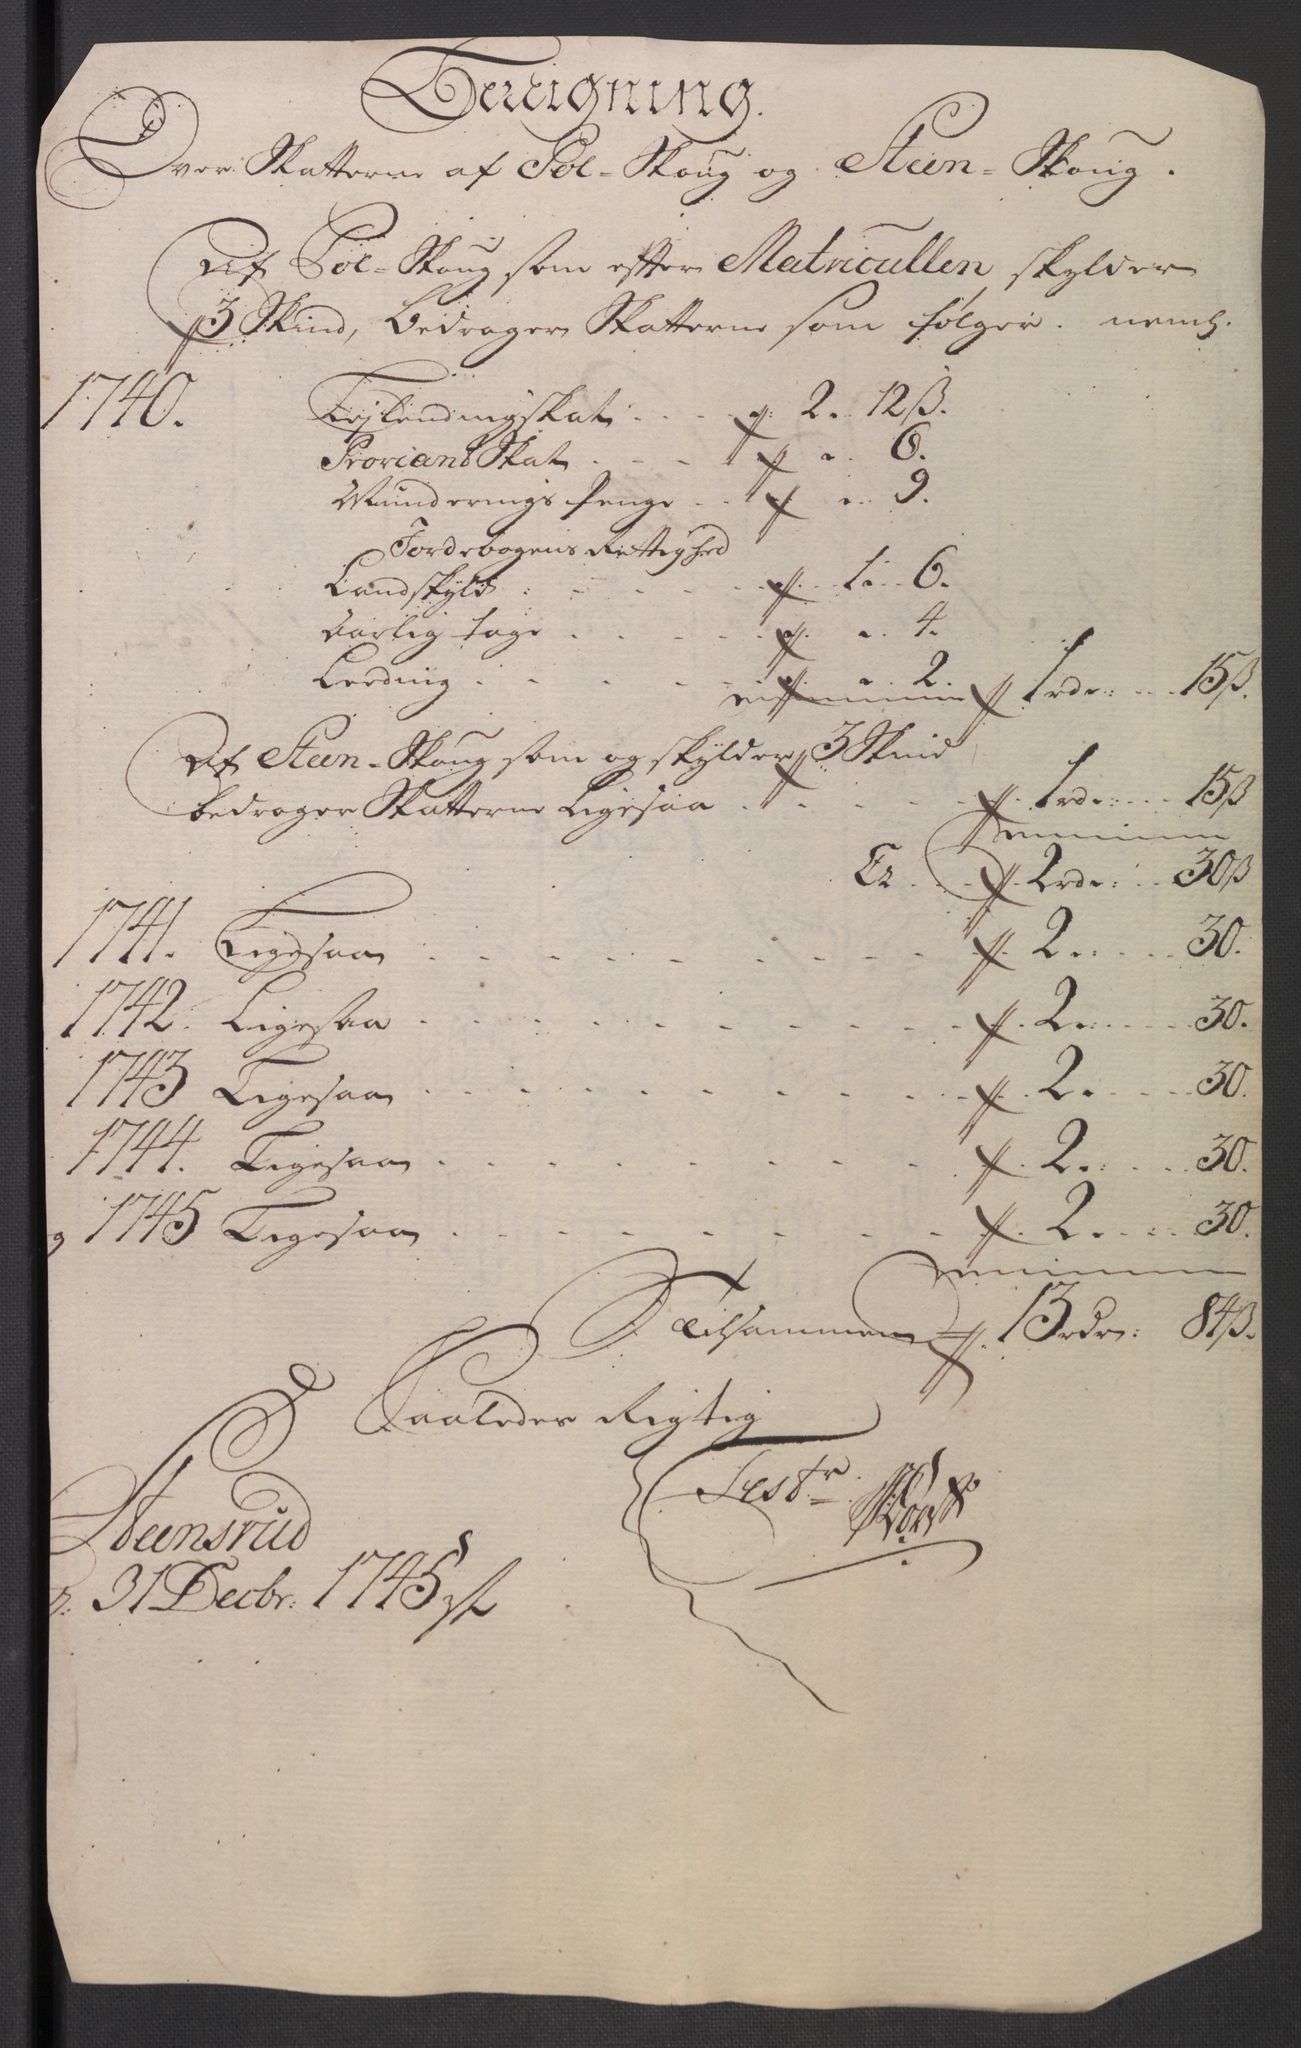 Bereigning.
Over Skatterne af Pol-Skoug og Steen-Skoug.
Af Pol-Skoug som efter Matricullen skylder
3 Skind, bedrager Skatterne som følger. neml.
1740. Leylendingskat 2. 12 ß.
Proviant Skat 6.
Munderings Penge 9.
Jordebogens Rettighed
Landskyld 1. 6.
Aarlig tage 4.
Leeding 2. 1 rdr: 15 ß.
Af Steen-Skoug som og skylder 3 Skind
bedrager Skatterne Ligesaa 1 rdr: 15 ß
Er 2 rdr: 30 ß
1741. Ligesaa 2. 30.
1742. Ligesaa 2. 30.
1743 Ligesaa 2. 30.
1744. Ligesaa 2. 30.
1745 Ligesaa 2. 30.
Tilsammen 13 rdr: 84 ß.
Saaledes Rigtig
Test:
Steensrud
d: 31 Decbr: 1745